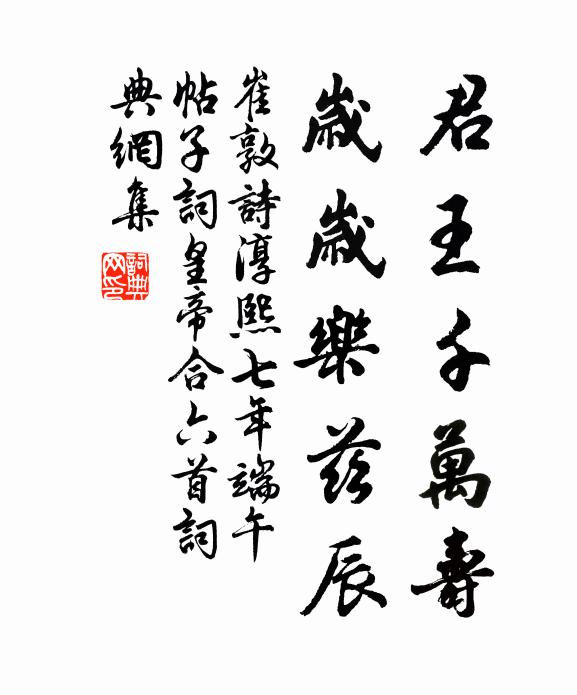 君王千萬壽
歲歲樂茲辰
崔敦詩淳熙七年端午
帖子詞皇帝合六首詞
典網集
詞典网印